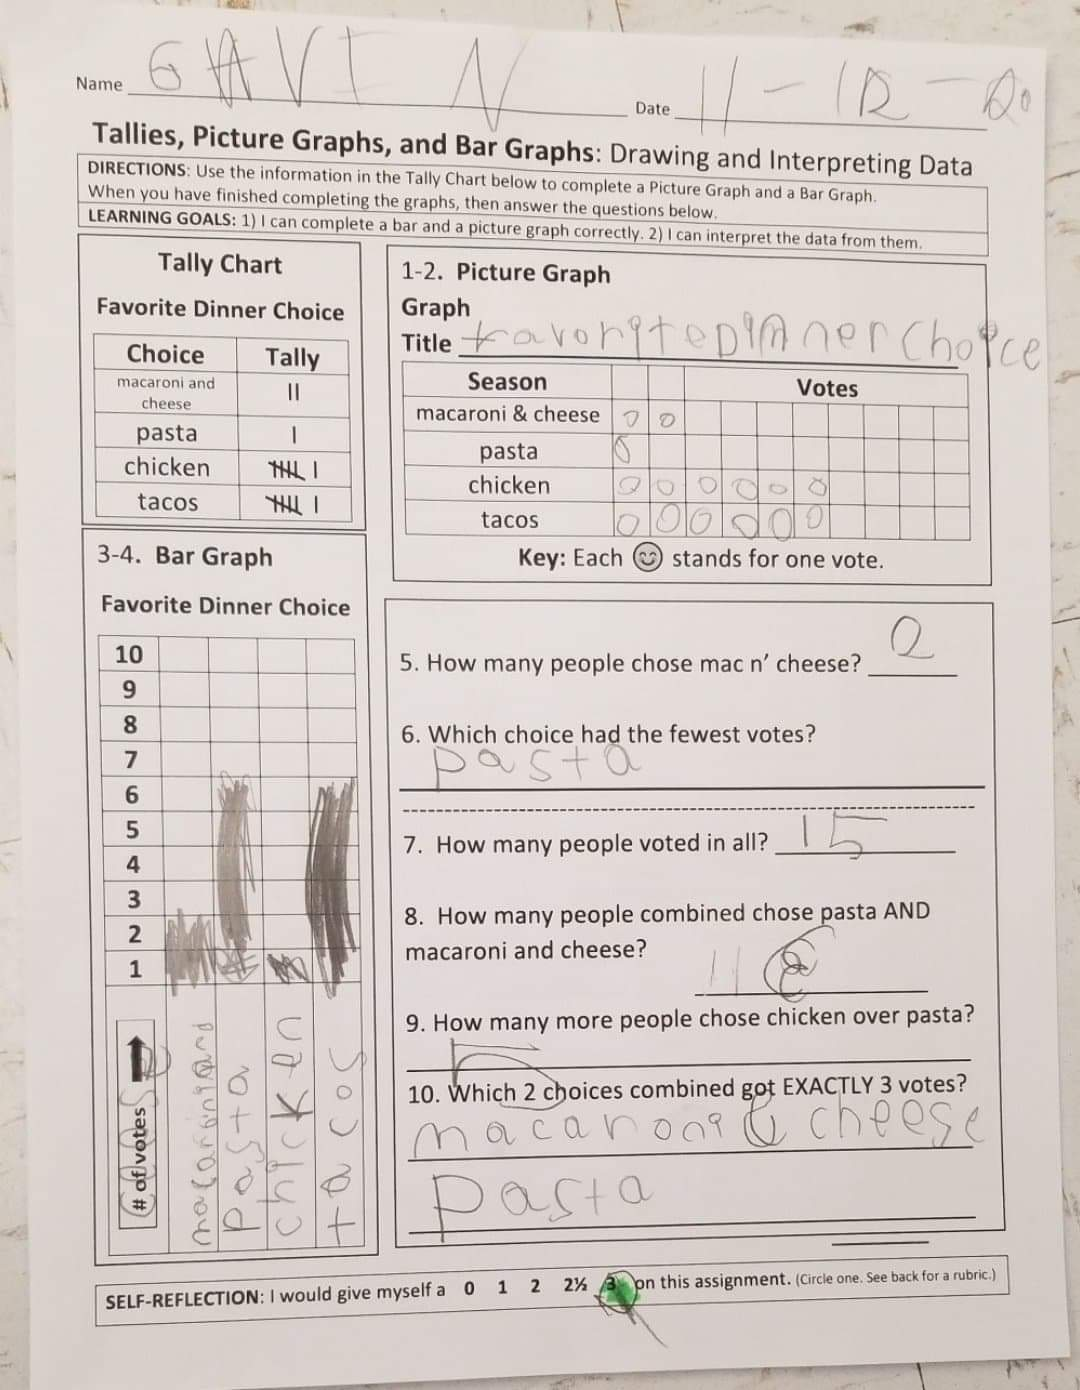 Name GAVIN
Date 11-12-20
Tallies, Picture Graphs, and Bar Graphs: Drawing and Interpreting Data
DIRECTIONS: Use the information in the Tally Chart below to complete a Picture Graph and a Bar Graph.
When you have finished completing the graphs, then answer the questions below.
LEARNING GOALS: 1) I can complete a bar and a picture graph correctly. 2) I can interpret the data from them.
Tally Chart
Favorite Dinner Choice
Choice Tally
macaroni and
cheese
pasta
chicken
tacos
1-2. Picture Graph
Graph
Title favorite Dinner Choice
Season Votes
macaroni & cheese
pasta
chicken
tacos
Key: Each 😊 stands for one vote.
3-4. Bar Graph
Favorite Dinner Choice
10
9
8
7
6
5
4
3
2
1
# of votes
pasta
chicken
tacos
5. How many people chose mac n' cheese? 2
6. Which choice had the fewest votes?
pasta
7. How many people voted in all? 15
8. How many people combined chose pasta AND
macaroni and cheese?
9. How many more people chose chicken over pasta?
5
10. Which 2 choices combined got EXACTLY 3 votes?
macaroni & cheese
Pasta
SELF-REFLECTION: I would give myself a 0 1 2 2½ 3 on this assignment. (Circle one. See back for a rubric.)